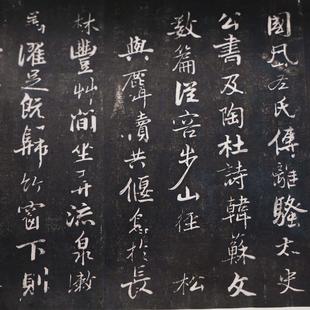 國風左氏傳離騷太史
公書及陶杜詩韓蘇文
數篇從容步山徑松
與麛犢共偃息於長
林豐艸間坐弄流泉漱
齒濯足既歸竹窗下則